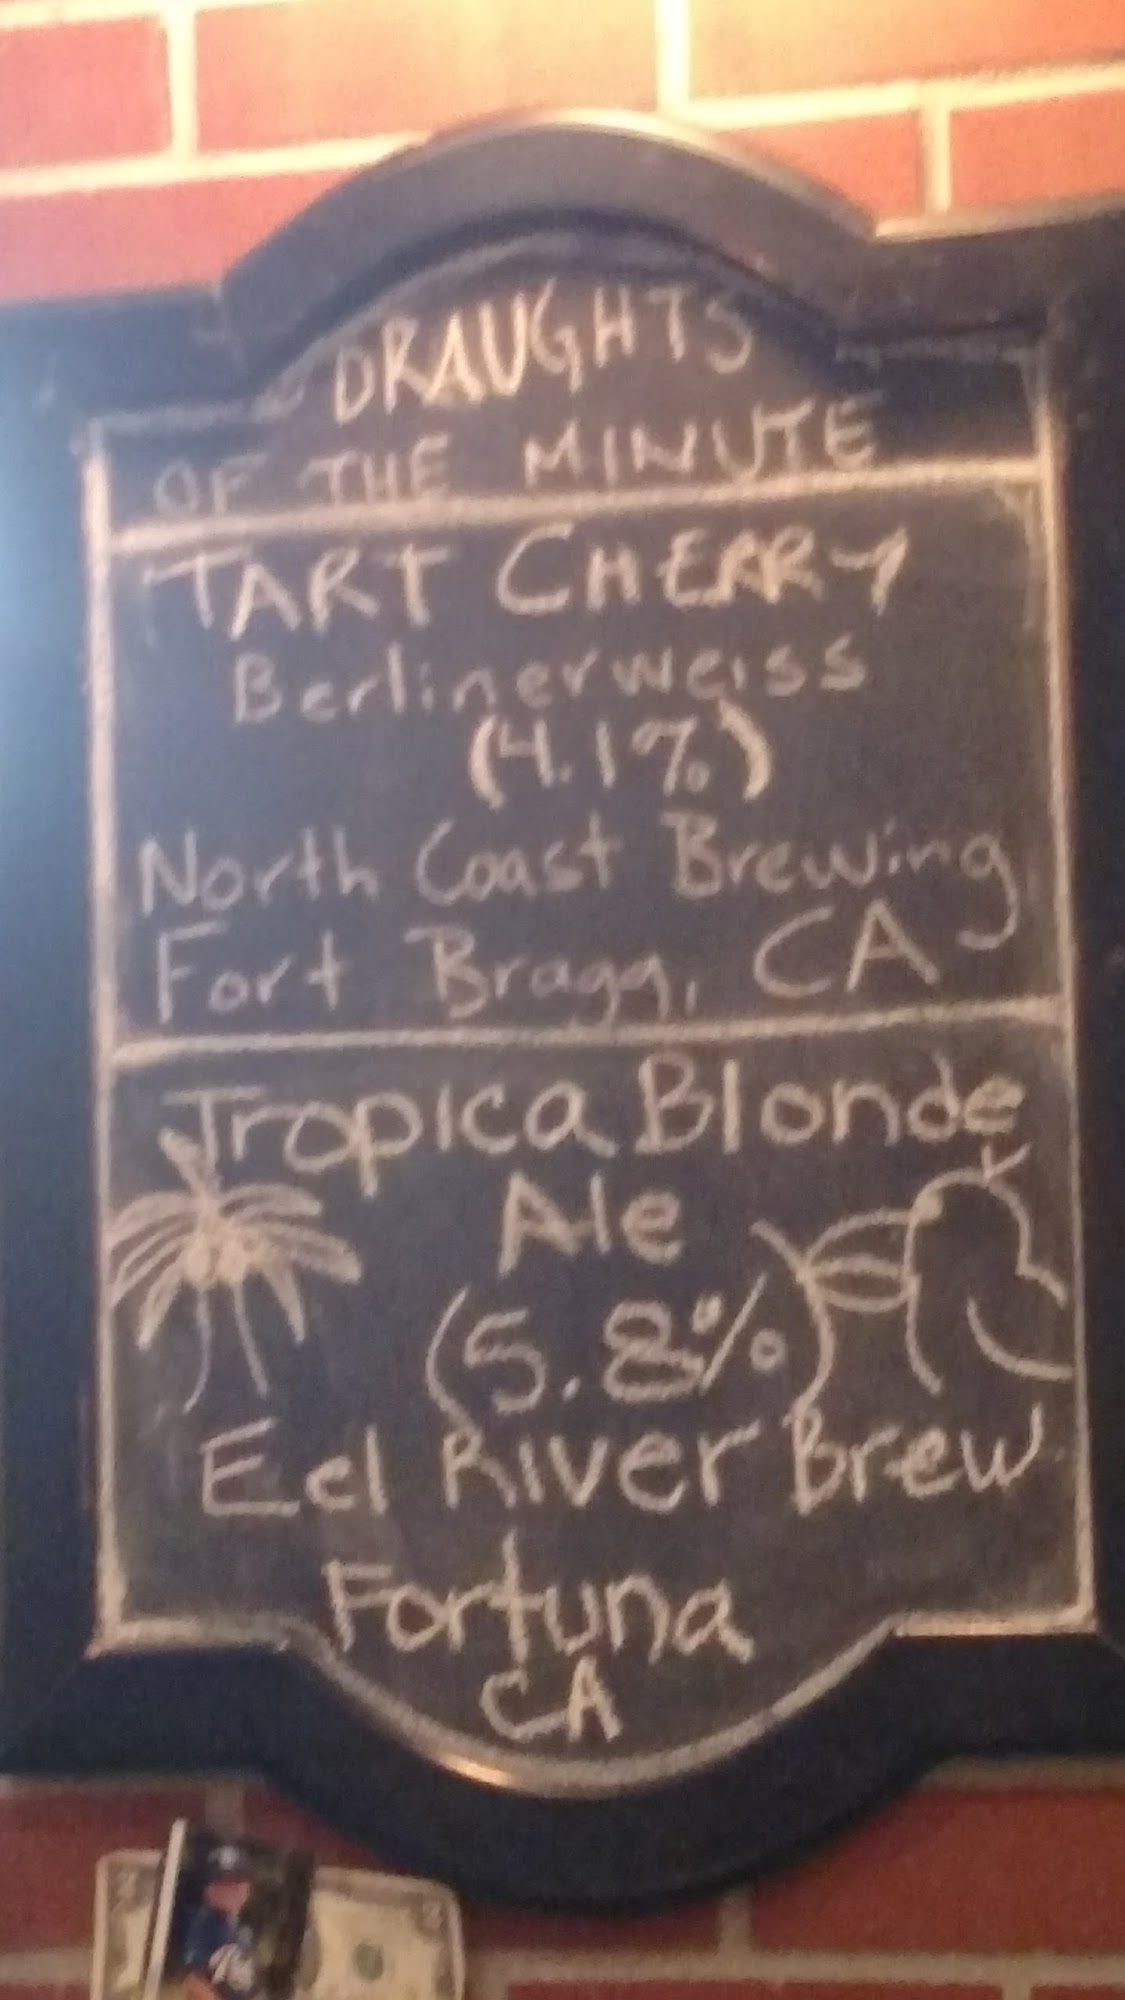 DRAUGHTS
OF THE MINUTE
TART CHERRY
Berlinerweiss
(4.1%)
North Coast Brewing
Fort Bragg, CA
Tropica Blonde
Ale
(5.8%)
Eel River Brew
Fortuna
CA